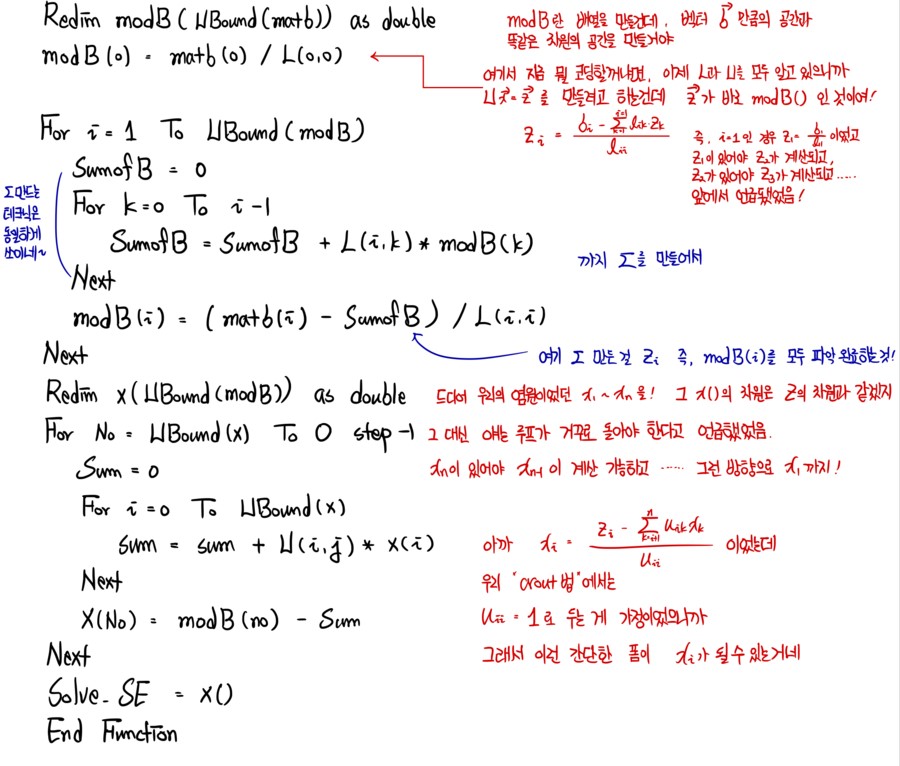 Redim modB(UBound(matb)) as double
modB란 배열을 만들건데, 벡터 b 만큼의 공간과
똑같은 차원의 공간을 만들거야
modB(0) = matb(0) / L(0,0)
여기서 지금 뭘 코딩할꺼냐면, 이제 L과 U를 모두 알고 있으니까
Ux = z 를 만들려고 하는건데 z가 바로 modB() 인 것이여!
For i=1 To UBound(modB)
z_i = (b_i - Σ_{k=1}^{i-1} l_ik·z_k) / l_ii
즉, i=1인 경우 z_1 = b_1/l_11 이었고
z_1이 있어야 z_2가 계산되고,
z_2가 있어야 z_3가 계산되고......
앞에서 언급했었음!
SumofB = 0
Σ만드는
테크닉은
동일하게
쓰이네~
For k=0 To i-1
SumofB = SumofB + L(i,k)*modB(k)
까지 Σ를 만들어서
Next
modB(i) = (matb(i) - SumofB) / L(i,i)
Next
여기 Σ 만든걸 z_i 즉, modB(i)를 모두 파악 완료하는것!
Redim x(UBound(modB)) as double
드디어 우리의 염원이었던 x_1~x_n을! 그 x()의 차원은 z의 차원과 같겠지
For No = UBound(x) To 0 step-1
그 대신 얘는 루프가 거꾸로 돌아야 한다고 언급했었음.
x_n이 있어야 x_n-1이 계산 가능하고 ...... 그런 방향으로 x_1까지!
Sum=0
For i=0 To UBound(x)
sum = sum + U(i,j)* x(i)
아까 x_i = (z_i - Σ_{k=i+1}^{n} u_ik x_k) / u_ii 이었는데
Next
우리 "crout법"에서는
X(No) = modB(no) - Sum
u_ii = 1로 두는 게 가정이었으니까
Next
그래서 이런 간단한 폼이 x_i가 될수 있는거네
Solve_SE = x()
End Function